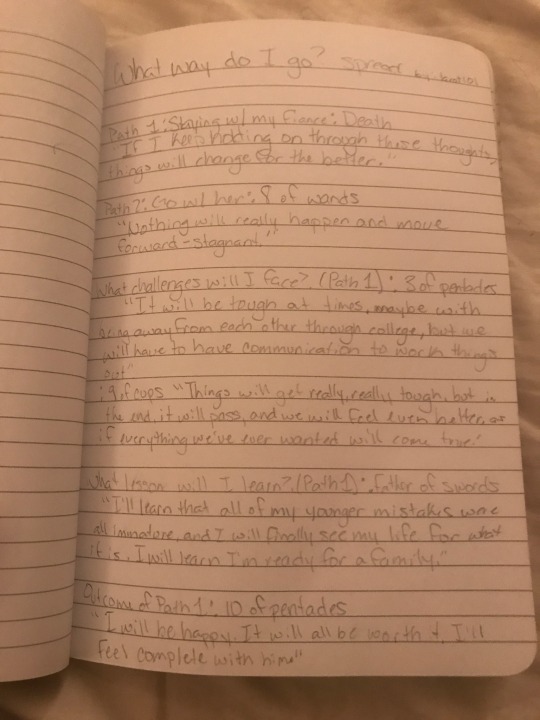 What way do I go? spread by
Path 1: Staying w/ my fiance: Death
"If I keep holding on through these thoughts,
things will change for the better."
Path 2: Go w/ her: 8 of wands
"Nothing will really happen and move
forward - stagnant."
What challenges will I face? (Path 1): 3 of pentacles
"It will be tough at times, maybe with
being away from each other through college, but we
will have to have communication to work things
out"
: 9 of cups "Things will get really, really tough, but in
the end, it will pass, and we will feel even better, as
if everything we've ever wanted will come true."
What lesson will I learn? (Path 1): father of swords
"I'll learn that all of my younger mistakes were
all immature, and I will finally see my life for what
it is. I will learn I'm ready for a family."
Outcome of Path 1: 10 of pentacles
"I will be happy. It will all be worth it, I'll
feel complete with him"